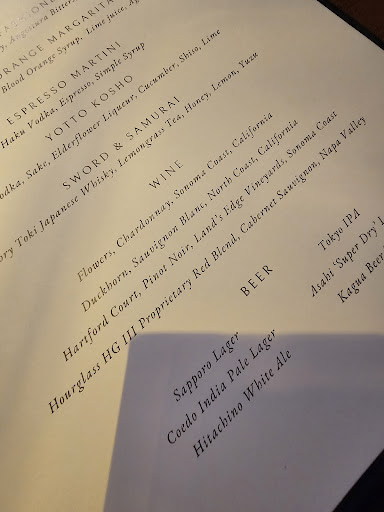 Angostura Bitters
ORANGE MARGARITA
Blood Orange Syrup, Lime juice,
ESPRESSO MARTINI
Haku Vodka, Espresso, Simple Syrup
YOTTO KOSHO
Sake, Elderflower Liqueur, Cucumber, Shiso, Lime
SWORD & SAMURAI
Toki Japanese Whisky, Lemongrass Tea, Honey, Lemon, Yuzu
WINE
Flowers, Chardonnay, Sonoma Coast, California
Duckhorn, Sauvignon Blanc, North Coast, California
Hartford Court, Pinot Noir, Land's Edge Vineyards, Sonoma Coast
Hourglass HG III Proprietary Red Blend, Cabernet Sauvignon, Napa Valley
BEER
Sapporo Lager
Coedo India Pale Lager
Hitachino White Ale
Tokyo IPA
Asahi 'Super Dry'
Kagua Beer